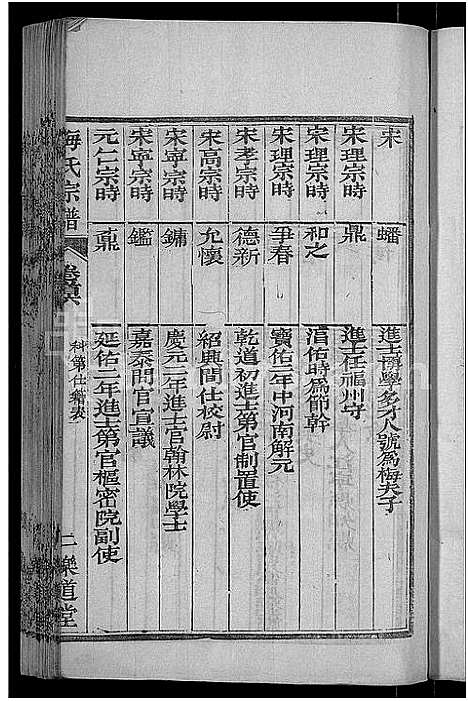 宋 蟠 進士博學多才人號爲梅夫子
宋理宗時 鼎 進士任福州守
宋理宗時 和之 淯佑時爲節幹
宋理宗時 爭春 寶佑二年中河南解元
宋孝宗時 德新 乾道初進士第官制置使
宋高宗時 允懷 紹興間仕校尉
宋寧宗時 鏞 慶元二年進士官翰林院學士
宋寧宗時 鑑 嘉泰間官宣議
元仁宗時 鼒 延佑二年進士第官樞密院副使
梅氏宗譜 科第仕籍表 樂道堂